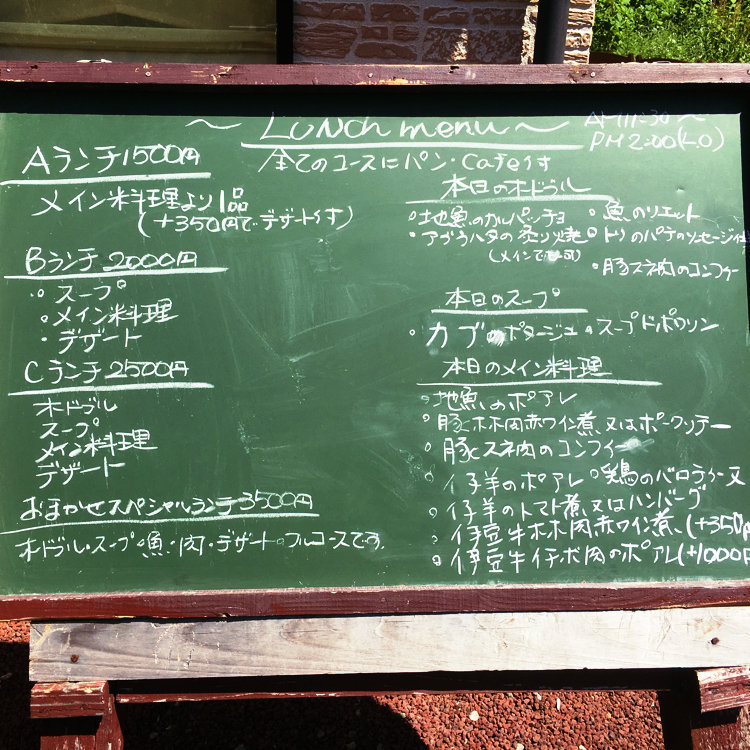 ～ Lunch menu ～
AM11:30～
PM2:00(L.O)
Aランチ1500円
全てのコースにパン・Cafe付
メイン料理より1品
(+350円でデザート付)
Bランチ2000円
・スープ
・メイン料理
・デザート
Cランチ2500円
オードブル
スープ
メイン料理
デザート
おまかせスペシャルランチ3500円
オードブル・スープ・魚・肉・デザートのフルコースです。
本日のオードブル
・地魚のカルパッチョ ・魚のリエット
・アブラハタの炙り焼 ・トリのパテのソーセージ
(メインで可)
・豚スネ肉のコンフィー
本日のスープ
・カブのポタージュ ・スープドポワソン
本日のメイン料理
・地魚のポアレ
・豚ホホ肉赤ワイン煮又はポークソテー
・豚スネ肉のコンフィー
・仔羊のポアレ ・鶏のバロティー又
・仔羊のトマト煮又はハンバーグ
・伊豆牛ホホ肉赤ワイン煮(+350円
・伊豆牛イチボ肉のポアレ(+1000円